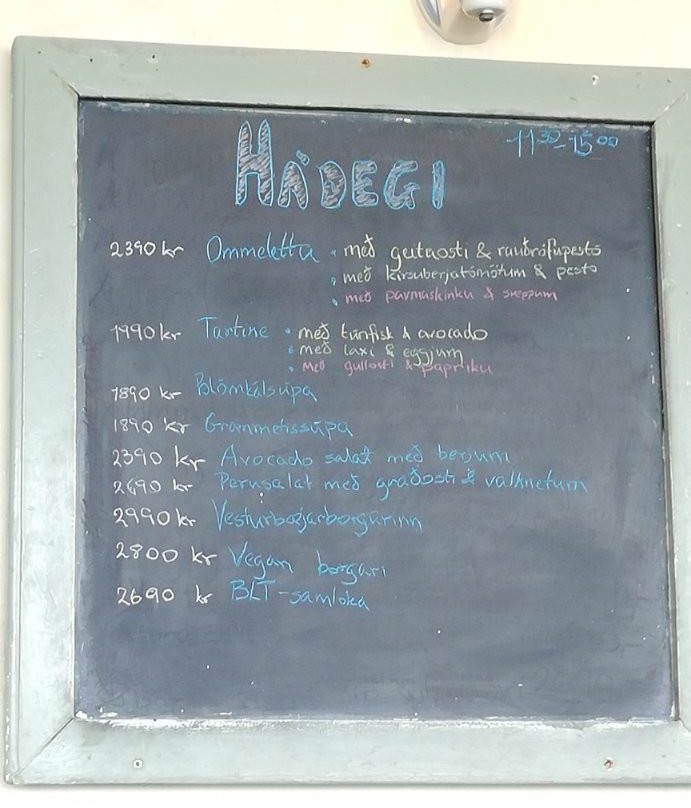 HÁDEGI 11:30-15:00
2390 kr Ommeletta • með geitaosti & rauðrófupestó
• með kirsuberjatómötum & pesto
• með parmaskinku & sveppum
1990 kr Tartine • með túnfisk & avocado
• með laxi & eggjum
• með gullosti & papriku
1890 kr Blómkálsúpa
1890 kr Grænmetissúpa
2390 kr Avocado salat með berjum
2690 kr Perusalat með gráðosti & valhnetum
2990 kr Vesturbæjarborgarinn
2800 kr Vegan borgari
2690 kr BLT-samloka